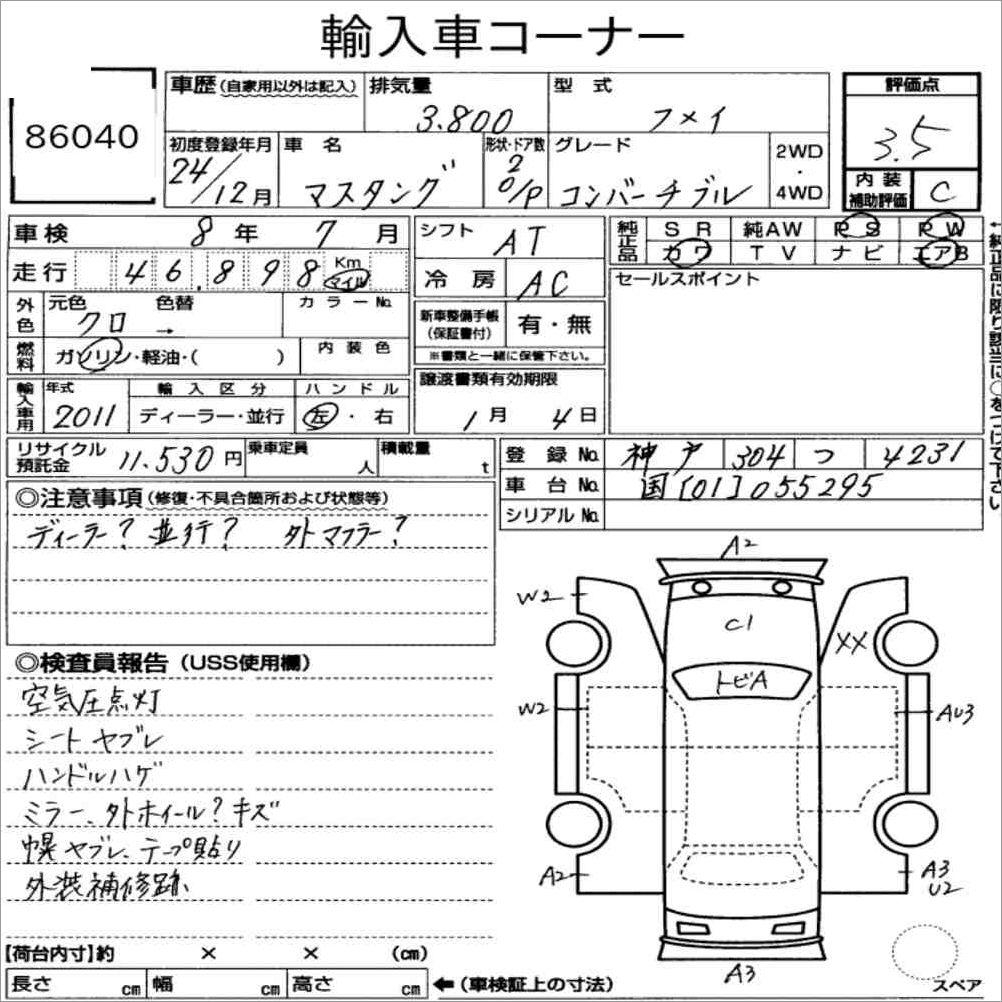 輸入車コーナー
86040
車歴(自家用以外は記入) 排気量 3.800 型式 フメイ 評価点 3.5
初度登録年月 24/12月 車名 マスタング 形状・ドア数 2 O/P グレード コンバーチブル 2WD・4WD 内装補助評価 C
車検 8年 7月 シフト AT 純正品 SR 純AW PS PW
カワ TV ナビ エアB
走行 46.898 Km マイル 冷房 AC セールスポイント
外色 元色 クロ 色替 → カラーNo.
新車整備手帳(保証書付) 有・無
燃料 ガソリン・軽油・( ) 内装色 ※書類と一緒に保管下さい。
輸入車用 年式 2011 輸入区分 ディーラー・並行 ハンドル 左・右 譲渡書類有効期限 1月 4日
←純正品に限り該当に○をつけて下さい
リサイクル預託金 11.530円 乗車定員 人 積載量 t 登録No. 神戸 304 つ 4231
車台No. 国[01]055295
シリアルNo.
◎注意事項(修復・不具合箇所および状態等)
ディーラー? 並行? 外マフラー?
◎検査員報告(USS使用欄)
空気圧点灯
シートヤブレ
ハンドルハゲ
ミラー、外ホイール?キズ
幌ヤブレ、テープ貼り
外装補修跡
A2
W2
C1
XX
トビA
W2
AU3
A2
A3
U2
A3
スペア
【荷台内寸】約 × × (cm)
長さ cm 幅 cm 高さ cm ←(車検証上の寸法)